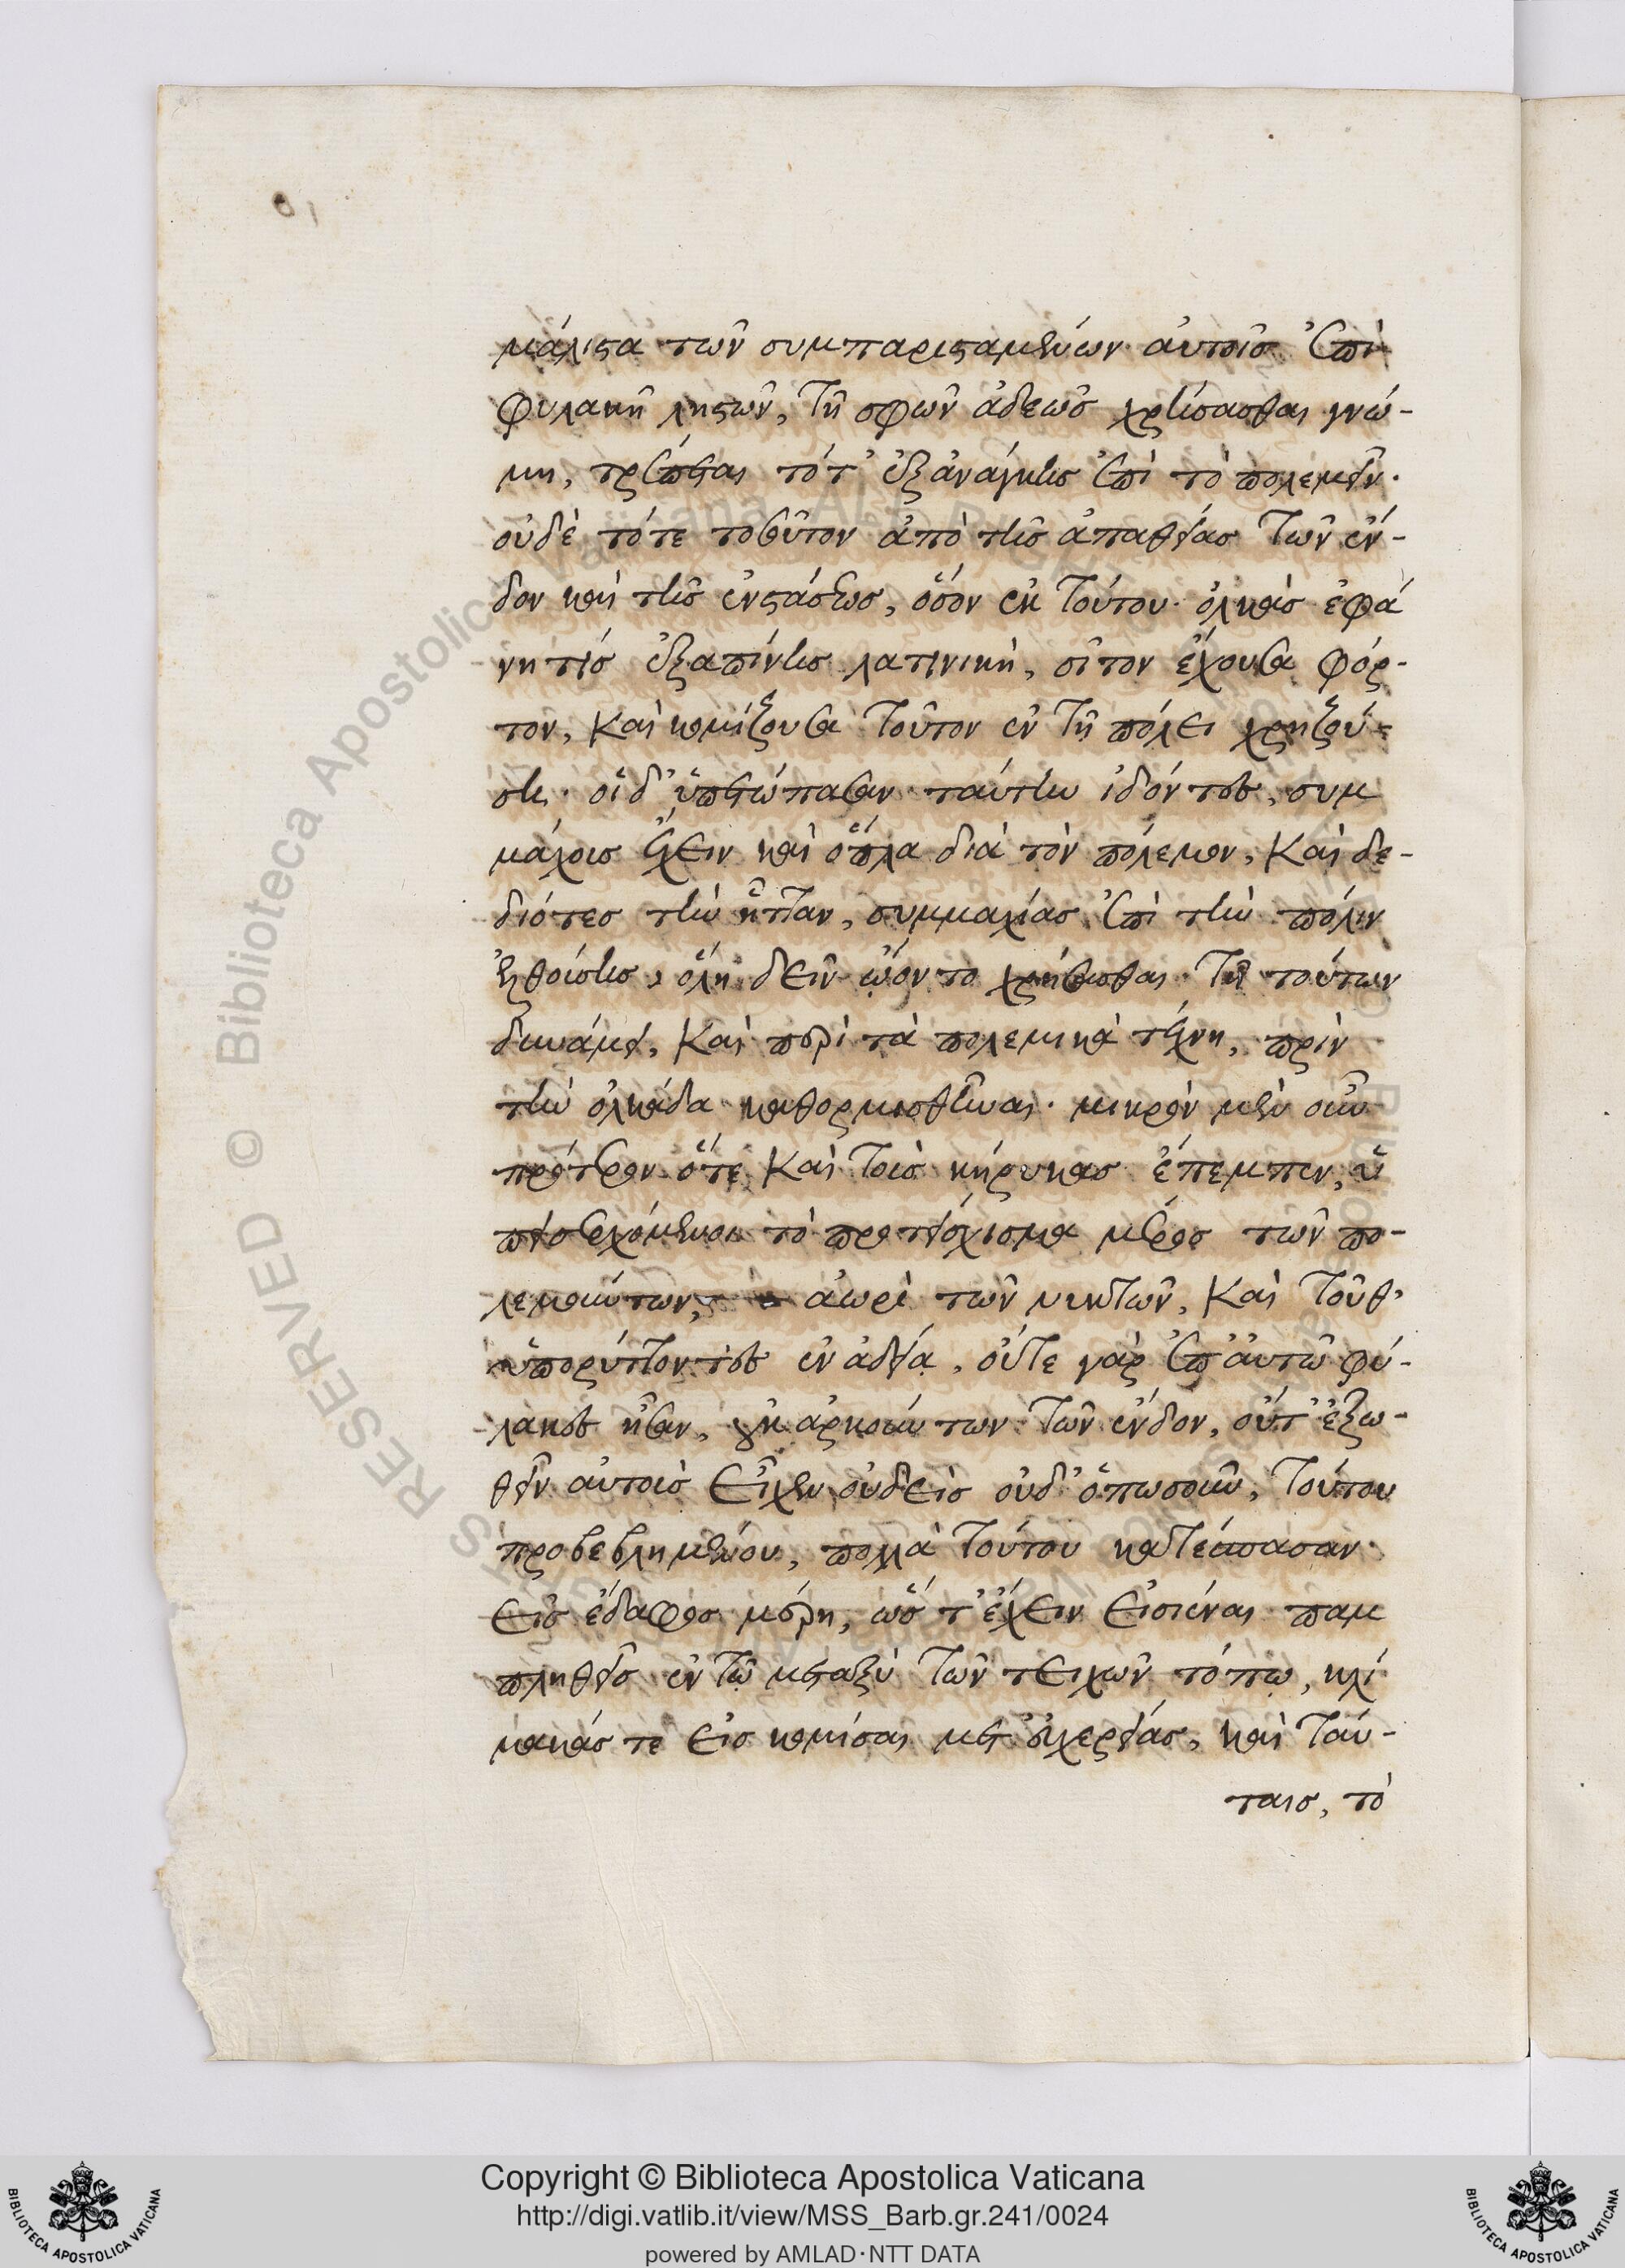 μάλιστα τῶν συμπαρισταμένων αὐτοῖς ἐπὶ
φυλακῇ λῃστῶν, τῇ σφῶν ἀδεῶς χρήσασθαι γνώ-
μῃ, τρέπεται τότ' ἐξανάγκης ἐπὶ τὸ πολεμεῖν.
οὐδὲ τότε τοσοῦτον ἀπὸ τῆς ἀπαθείας τῶν ἔν-
δον καὶ τῆς ἐνστάσεως, ὅσον ἐκ τούτου. ὁλκὰς ἐφά
νη τίς ἐξαπίνης λατινικὴ, σῖτον ἔχουσα φόρ-
τον, καὶ κομίζουσα τοῦτον ἐν τῇ πόλει χρηζού-
σῃ. οἵδ' ὑπετώπασαν ταύτην ἰδόντες, συμ
μάχοις ἔχειν καὶ ὅπλα διὰ τὸν πόλεμον, καὶ δε-
διότες τὴν ἧτταν, συμμαχίας ἐπὶ τὴν πόλιν
ἐλθούσης, ὅλῃ δεῖν ᾤοντο χρήσασθαι τῇ τούτων
δυνάμει, καὶ περὶ τὰ πολεμικὰ τέχνῃ, πρὶν
τὴν ὁλκάδα καθορμισθῆναι. μικρὸν μὲν οὖν
πρότερον ὅτε καὶ τοὺς κήρυκας ἔπεμπεν, ὑ
πεισερχόμενοι τὸ προτείχισμα μέρος τῶν πο-
λεμούντων, ἀωρὶ τῶν νυκτῶν, καὶ τοῦθ'
ὑπορύττοντες ἐν ἀδείᾳ, οὔτε γὰρ ἐπ' αὐτῷ φύ-
λακες ἦσαν, οὐκ ἀρκούντων τῶν ἔνδον, οὔτ' ἔξω-
θεν αὐτοῖς εἶχεν οὐδεὶς οὐδ' ὁπωσοῦν, τούτου
προβεβλημένου, πολλὰ τούτου κατέσπασαν
εἰς ἔδαφος μέρη, ὥς τ' ἔχειν εἰσιέναι παμ
πληθεῖς ἐν τῷ μεταξὺ τῶν τειχῶν τόπῳ, κλί
μακάς τε εἰσκομίσαι μετ' εὐχερείας, καὶ ταύ-
ταις, τὸ
Copyright © Biblioteca Apostolica Vaticana
http://digi.vatlib.it/view/MSS_Barb.gr.241/0024
powered by AMLAD·NTT DATA